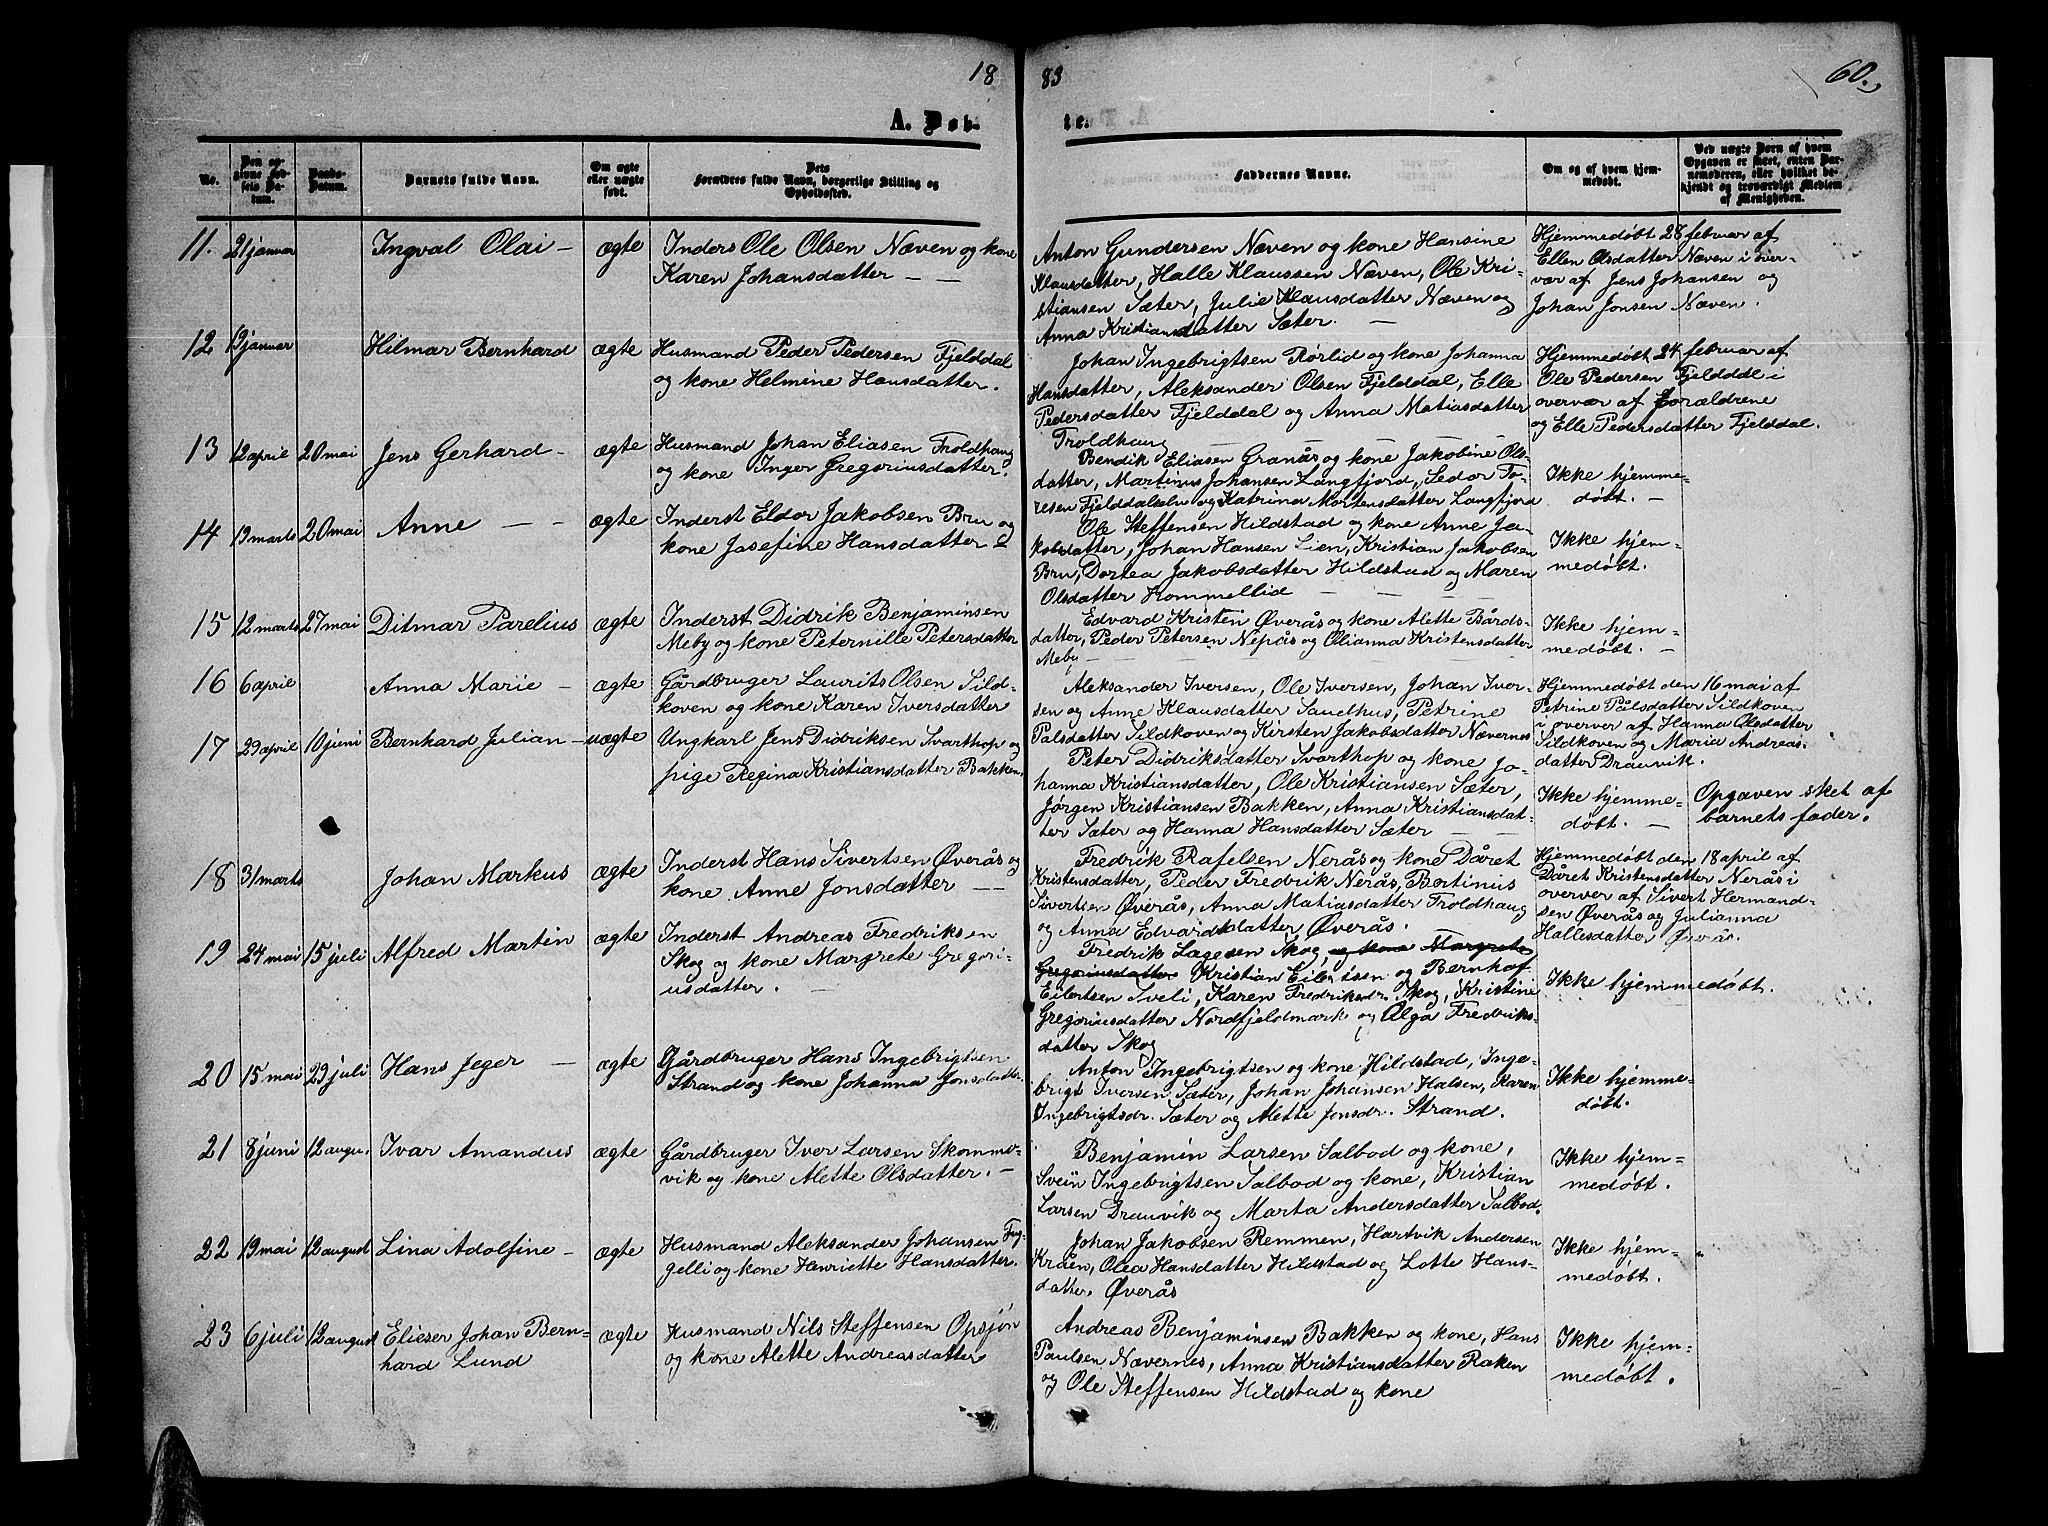 18
83
60.
A. Døb-
te.
No.
Den opgivne Fødsels Datum.
Daabs-Datum.
Barnets fulde Navn.
Om ægte eller uægte født.
Dets Forældres fulde Navn, borgerlige Stilling og Opholdssted.
Faddernes Navne.
Om og af hvem hjemmedøbt.
Ved uægte Børn af hvem Opgaven er skeet, enten Barnemoderen, eller hvilket bekjendt og troværdigt Medlem af Menigheden.
11. 21 januar Ingval Olai – ægte Inders Ole Olsen Næven og kone
Karen Johansdatter –
Anton Gundersen Næven og kone Hansine
Klausdatter, Halle Klaussen Næven, Ole Kri-
stiansen Sæter, Julie Klausdatter Næven og
Anna Kristiansdatter Sæter. –
Hjemmedøbt 28 februar af
Ellen Olsdatter Næven i over-
vær af Jens Johansen og
Johan Jonsen Næven.
12 19 januar Hilmar Bernhard ægte Husmand Peder Pedersen Fjelddal
og kone Helmine Hansdatter.
Johan Ingebrigtsen Rørlid og kone Johanna
Hansdatter, Aleksander Olsen Fjelddal, Elle
Pedersdatter Fjelddal og Anna Matiasdatter
Troldhaug
Hjemmedøbt 24 februar af
Ole Pedersen Fjelddal i
overvær af Forældrene
og Elle Pedersdatter Fjelddal.
13 12 april 20 mai Jens Gerhard – ægte Husmand Johan Eliasen Troldhaug
og kone Inger Gregoriusdatter.
Bendik Eliasen Granås og kone Jakobine Ols-
datter, Martinus Johansen Langfjord, Sedor To-
resen Fjelddalselv og Katrina Mortensdatter Langfjord
Ikke hjemme-
døbt. –
14 19 marts 20 mai Anne – – ægte Inderst Eldor Jakobsen Bru og
kone Josefine Hansdatter
Ole Steffensen Hildstad og kone Anne Ja-
kobsdatter, Johan Hansen Lien, Kristian Jakobsen
Bru, Dortea Jakobsdatter Hildstad og Maren
Olsdatter Hommellid – – –
Ikke hjem-
medøbt.
15 12 marts 27 mai Ditmar Parelius ægte Inderst Didrik Benjaminsen
Meby og kone Peternille Petersdatter
Edvard Kristen Øverås og kone Alette Bårds-
datter, Peder Petersen Nepås og Olianna Kristensdatter
Meby – – –
Ikke hjem-
medøbt. –
16 6 april Anna Marie – ægte Gårdbruger Laurits Olsen Sild-
koven og kone Karen Iversdatter
Aleksander Iversen, Ole Iversen, Johan Iver-
sen og Anne Klausdatter Sandhus, Petrine
Palsdatter Sildkoven og Kirsten Jakobsdatter Nævernes
Hjemmedøbt den 16 mai af
Petrine Pålsdatter Sildkoven
i overver af Hanna Olsdatter
Sildkoven og Maria Andreas-
datter Drauvik.
17 29 april 10 juni Bernhard Julian – uægte Ungkarl Jens Didriksen Svarthop og
pige Regina Kristiansdatter Bakken.
Peter Didriksdatter Svarthop og kone Jo-
hanna Kristiansdatter, Ole Kristiansen Sæter,
Jørgen Kristiansen Bakken, Anna Kristiansdat-
ter Sæter og Hanna Hansdatter Sæter – –
Ikke hjemme-
døbt. –
Opgaven sket af
barnets fader.
18 31 marts Johan Markus ægte Inderst Hans Sivertsen Øverås og
kone Anne Jonsdatter – –
Fredrik Rafelsen Nerås og kone Dåret
Kristensdatter, Peder Fredrik Nerås, Bertinius
Sivertsen Øverås, Anna Matiasdatter Troldhaug
og Anna Edvardsdatter Øverås.
Hjemmedøbt den 18 april af
Dåret Kristensdatter Nerås i
overver af Sivert Hermand-
sen Øverås og Julianna
Hallesdatter Øverås.
19 24 mai 15 juli Alfred Martin ægte Inderst Andreas Fredriksen
Skog og kone Margrete Gregori-
usdatter. –
Fredrik Lagesen Skog, og kone Margrete
Gregoriusdatter Kristian Eilertsen og Bernhof
Eilertsen Sveli, Karen Fredriksdr. Skog, Kristine
Gregoriusdatter Nordfjeldmark og Olga Fredriks-
datter Skog
Ikke hjemmedøbt.
20 15 mai 29 juli Hans Jeger – ægte Gårdbruger Hans Ingebrigtsen
Strand og kone Johanna Jonsdatter
Anton Ingebrigtsen og kone Hildstad, Inge-
brigt Iversen Sæter, Johan Johansen Halsen, Karen
Ingebrigtsdr. Sæter og Alette Jonsdr. Strand.
Ikke hjemme-
døbt.
21 8 juni 12 augu. Ivar Amandus ægte Gårdbruger Iver Larsen Skomme-
vik og kone Alette Olsdatter. –
Benjamin Larsen Salbod og kone,
Svein Ingebrigtsen Salbod og kone, Kristian
Larsen Drauvik og Marta Andersdatter Salbod.
Ikke hjem-
medøbt.
22 19 mai 12 august Lina Adolfine – ægte Husmand Aleksander Johansen Fug-
gelli og kone Henriette Hansdatter.
Johan Jakobsen Remmen, Hartvik Andersen
Kråen, Olea Hansdatter Hildstad og Lotte Hans-
datter Øverås
Ikke hjem-
medøbt.
23 6 juli 12 august Elieser Johan Bern-
hard Lund
ægte Husmand Nils Steffensen Opsjøn
og kone Alette Andreasdatter
Andreas Benjaminsen Bakken og kone, Hans
Paulsen Nævernes, Anna Kristiansdatter Raken
og Ole Steffensen Hildstad og kone
Ikke hjem-
medøbt.